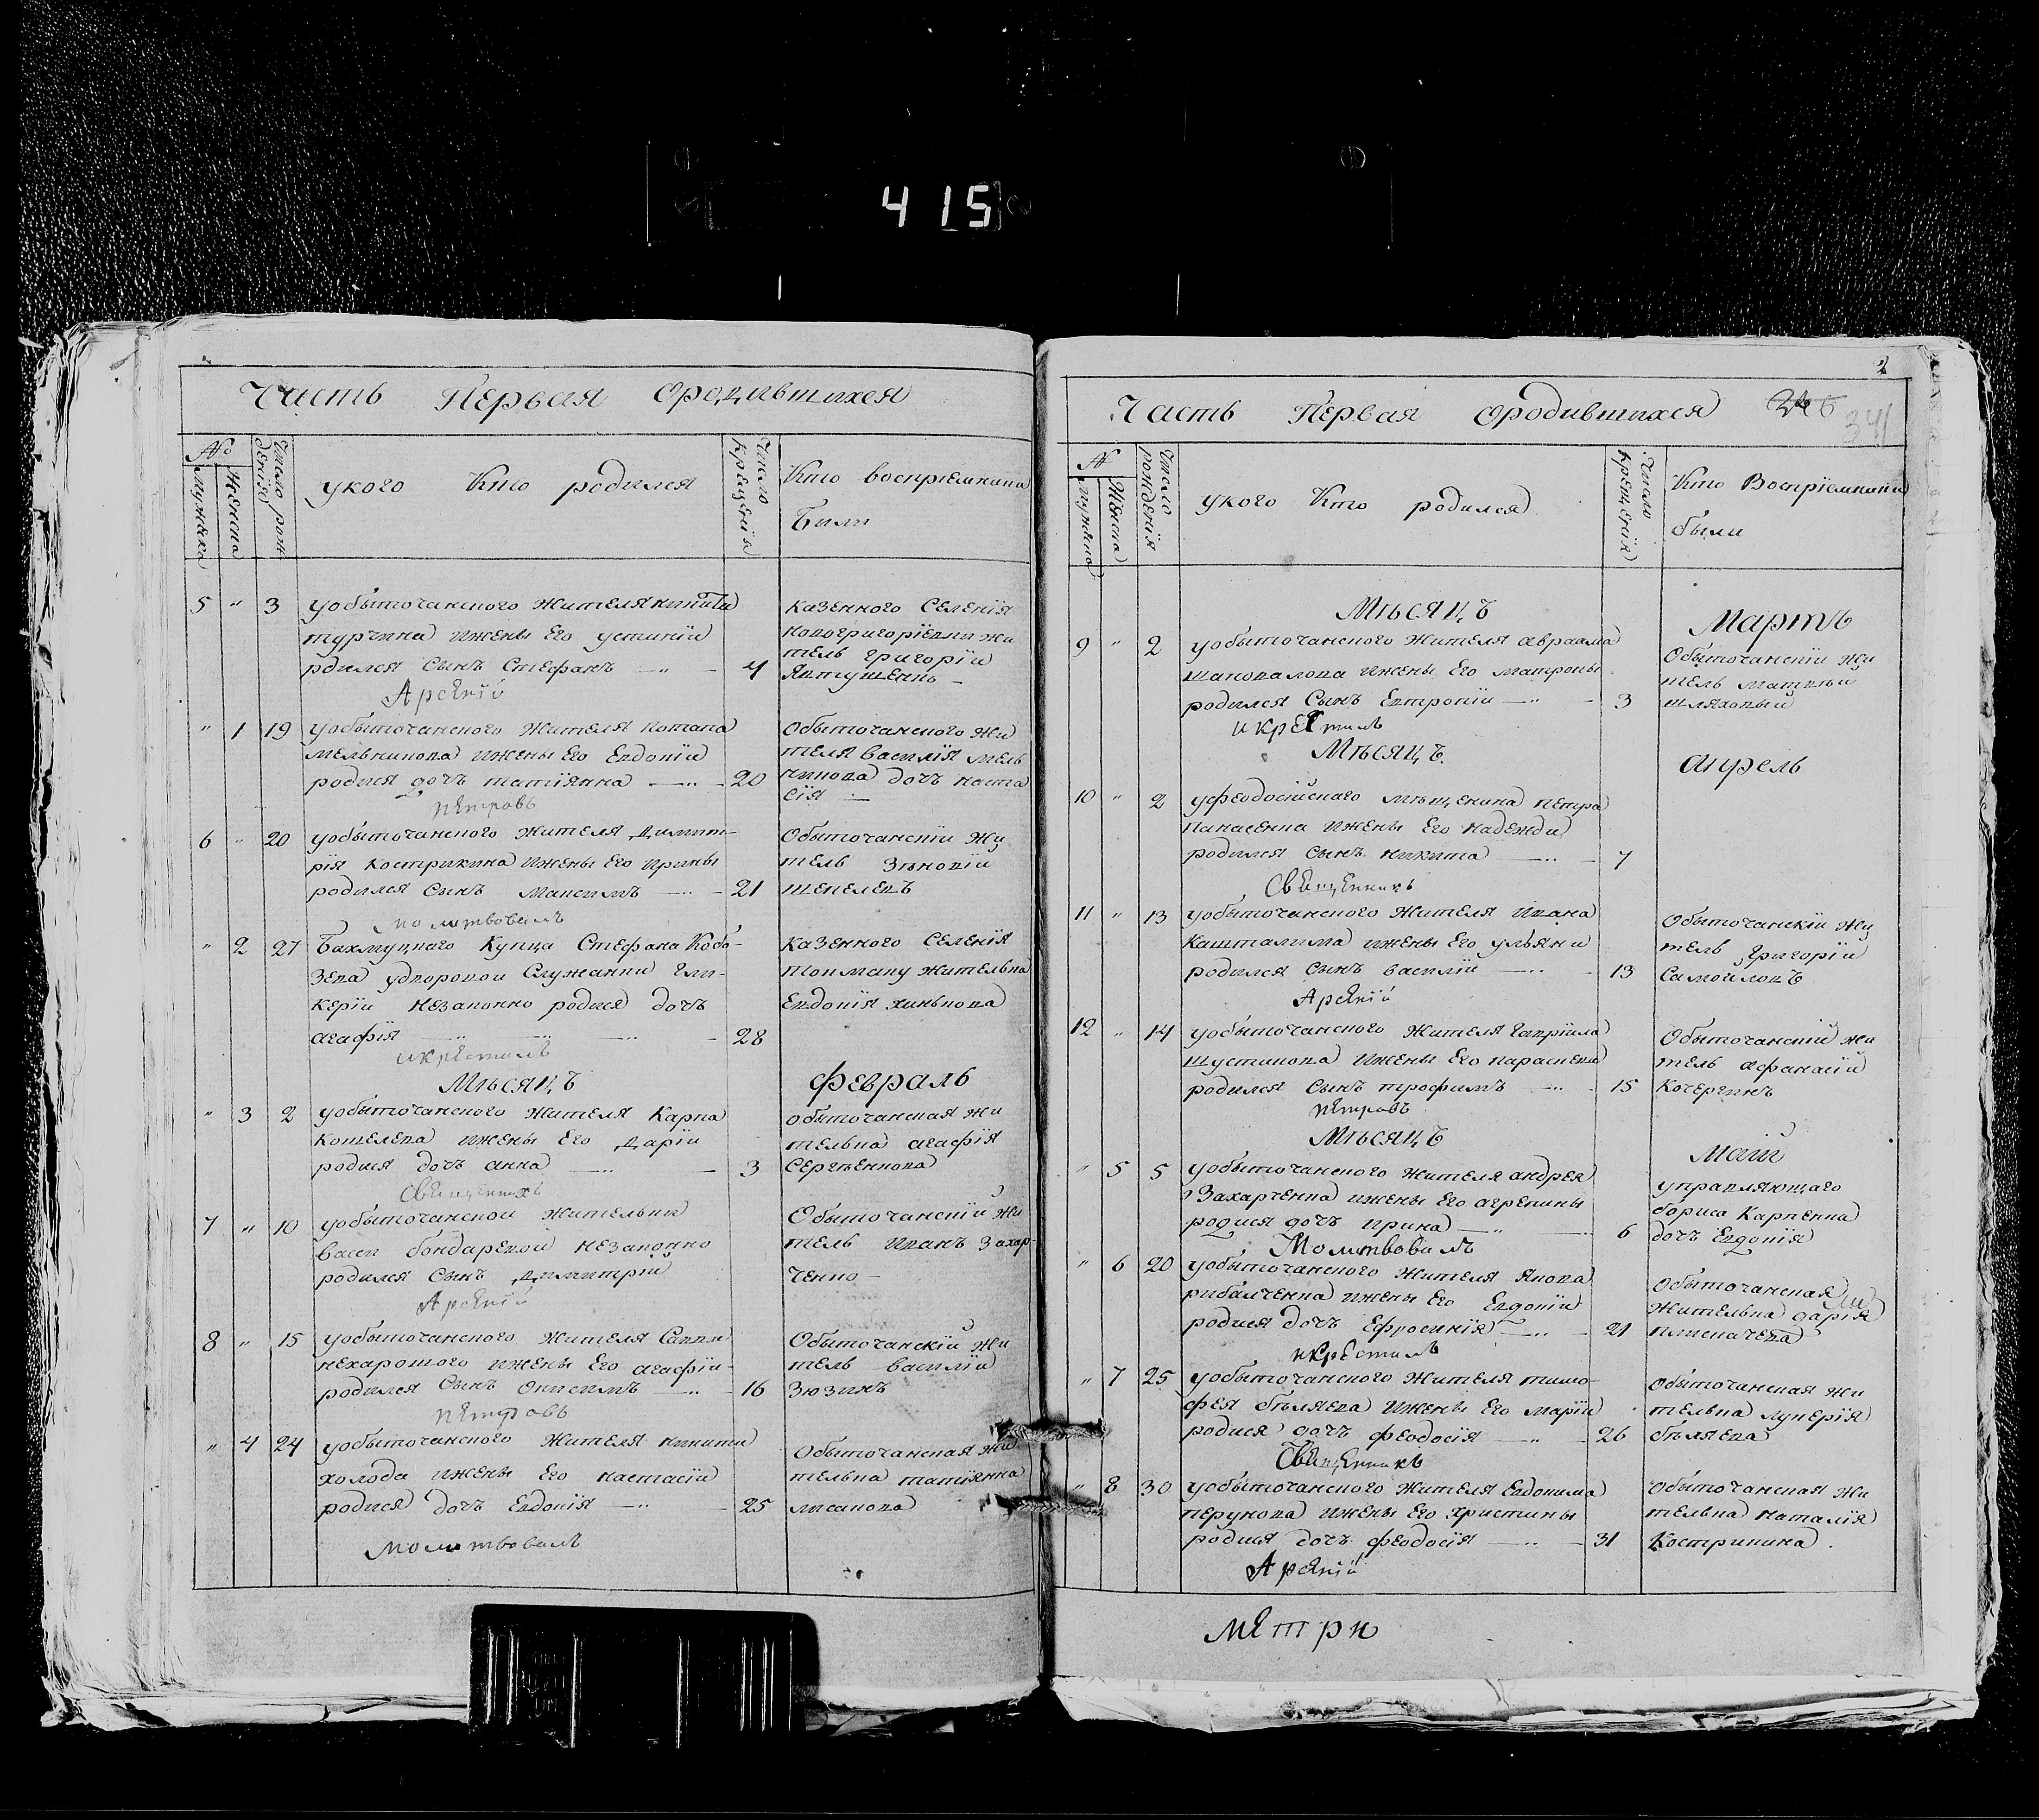 415
Часть Первая ородившихся
№
Мужеска
Женска
Число рож
денія
укого Кто родился
Число
крещенія
Кто воспріемники
Были
5 " 3 уобыточанского жителя никиты
турчина ижены Его устиніи
рдился Сынъ Стефанъ — " — 4
Арсеній
казенного Селенія
новогригоріевки жи
тель григорій
Явтушенко —
" 1 19 уобыточанского жителя потапа
мельникова ижены Его Евдокіи
родися дочь татіянна — " — 20
петровъ
Обыточанского жи
теля василія мель
никова дочь наста
сія —
6 " 20 уобыточанского жителя димит-
рія Кострикина ижены Его ирины
родился сынъ максимъ — " — 21
молитвовалъ
Обыточанскій жи
тель Зѣновій
шепелевъ
" 2 27 Бахмуцкаго Купца Стефана Кобы-
зева удворовой Служанки гли-
керіи незаконно родися дочь
агафія — " — 28
икрестилъ
казенного Селенія
Токмаку жителька
Евдокія
Мѣсяцъ февраль
" 3 2 уобыточанского жителя Карпа
кошелева ижены Его даріи
родися дочь анна — " — 3
Священникъ
обыточанская жи
телька агафія
Сергѣенкова
7 " 10 уобыточанской жительки
васси бондаревой незаконно
родился Сынъ димитрій
Арсеній
Обыточанскій жи
тель иванъ Захар-
ченко —
8 " 15 уобыточанского жителя Саввы
нехарошого ижены Его агафіи-
родился Сынъ онисимъ — " — 16
петровъ
Обыточанскій жи
тель василій
Зюзинъ
" 4 24 уобыточанского жителя никиты
холода ижены Его настасіи
родися дочь Евдокія — " — 25
молитвовалъ
Обыточанская жи
телька татіянна
лисакова
2
Часть Первая ородившихся
341
№
мужеска
Женска
Число
рожденія
укого Кто родился
Число
крещенія
Кто Воспріемники
были
Мѣсяцъ Мартъ
9 " 2 уобыточанского жителя авраама
шаповалова ижены Его матроны
родился Сынъ Евтропій — " — 3
икрестилъ
Обыточанскій жи
тель матвѣй
шляховый
Мѣсяцъ. апрель
10 " 2 уфеодосійскаго мѣщенина петра
панасенка ижены Его надежды
родился сынъ никита — " — 7
Священникъ
11 " 13 уобыточанского жителя ивана
кашталима ижены Его ульяни
родился сынъ василій — " — 13
Арсеній
Обыточанскій жи
тель григорій
Самойловъ
12 " 14 уобыточанского жителя гавріила
шустикова ижены Его параскеви
родился Сынъ трофимъ — " — 15
петровъ
Обыточанскій жи
тель афанасій
Кочергинъ
Мѣсяцъ май
" 5 5 уобыточанского жителя андрея
Захарченка ижены Его агрепины
родися дочь ирина — " — 6
Молитвовалъ
управляющаго
бориса Карпенка
дочь Евдокія
" 6 20 уобыточанского жителя Якова
рибалченка ижены Его Евдокіи
родися дочь Ефросинія — " — 21
икрестилъ
Обыточанская
жителька дарія
" 7 25 уобыточанского жителя тимо-
фея бѣляева ижены Его маріи
родися дочь феодосія — " — 26
Священникъ
Обыточанская жи
телька лукерія
бѣляева
" 8 30 уобыточанского жителя Евдокима
перукова ижены Его христины
родися дочь феодосія — " — 31
Арсеній
Обыточанская жи
телька наталія
Кострикина.
метри